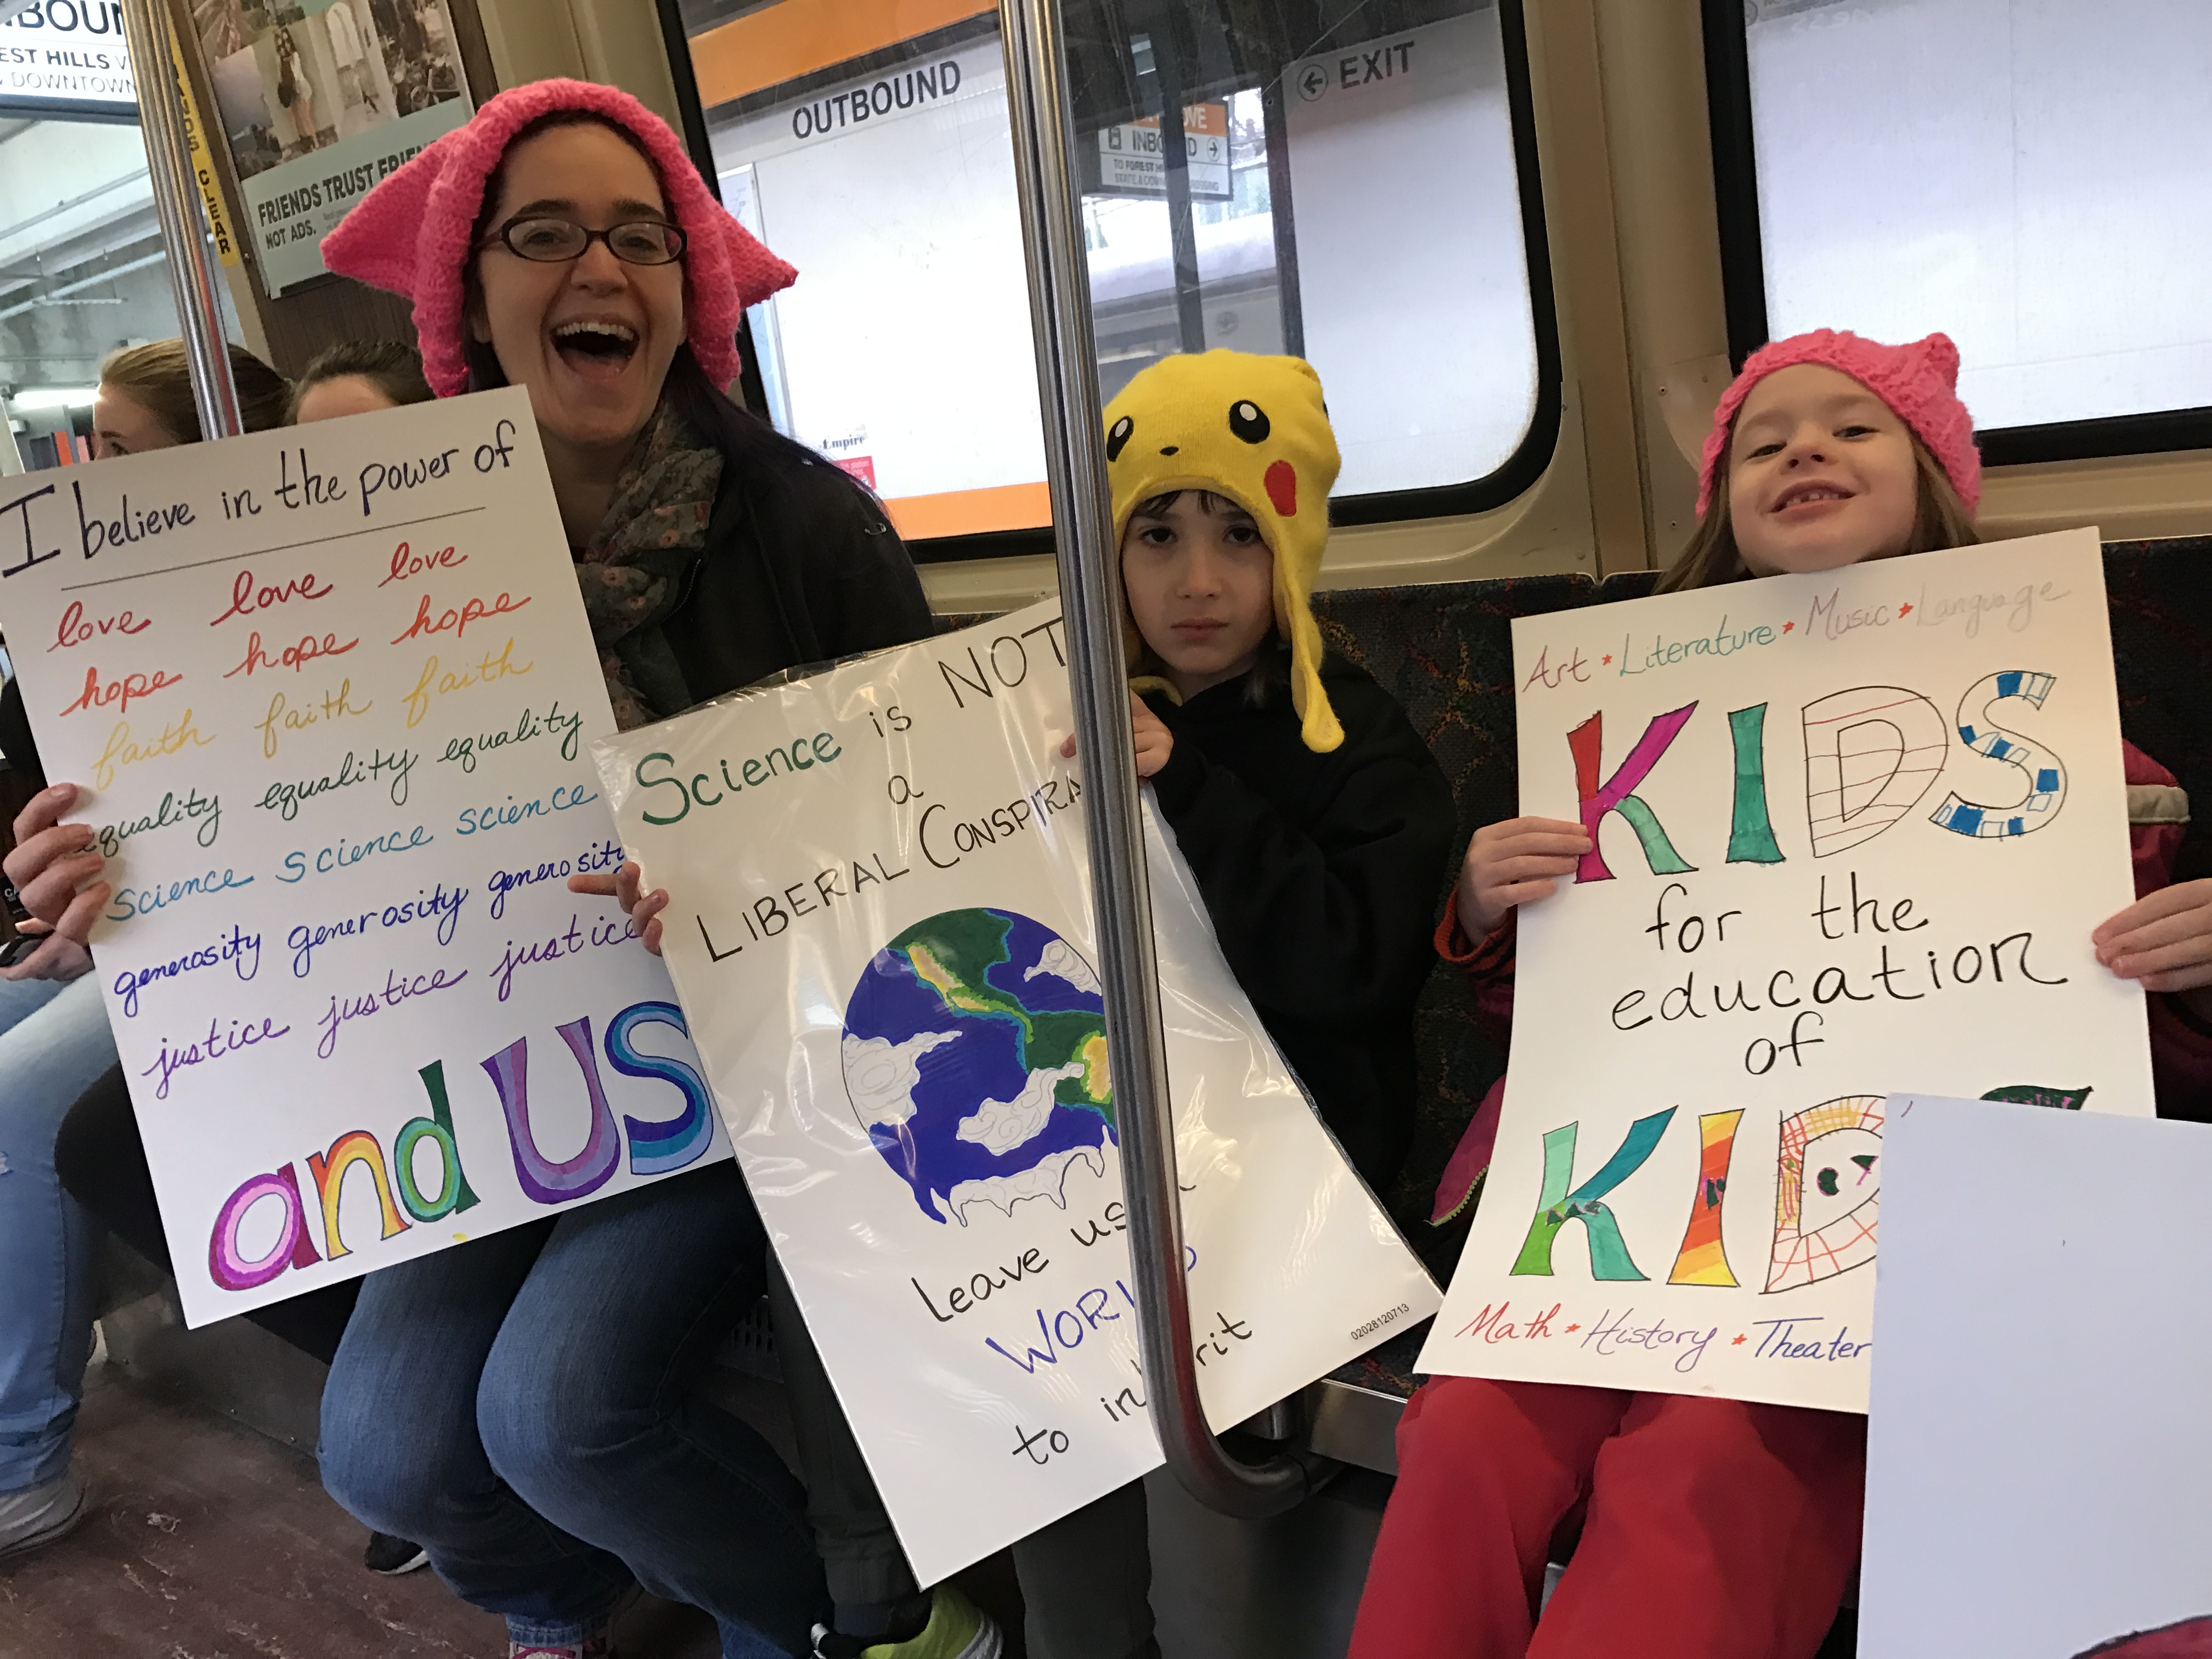 EST HILLS
DOWNTOWN
CLEAR
FRIENDS TRUST
NOT ADS.
OUTBOUND
EXIT
INBOUND
TO FOREST
STATE &
Empire
I believe in the power of
love love love
hope hope hope
faith faith faith
equality equality equality
science science science
generosity generosity generosity
justice justice justice
and us
Science is NOT
a
LIBERAL CONSPIRA
Leave us
WORL
to in rit
02028120713
Art * Literature * Music * Language
KIDS
for the
education
of
KID
Math * History * Theater